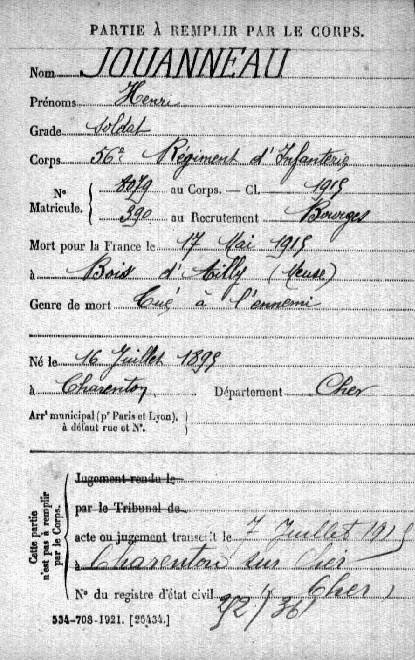 PARTIE À REMPLIR PAR LE CORPS.
Nom JOUANNEAU
Prénoms Henri
Grade soldat
Corps 56e Régiment d'Infanterie
N° Matricule. 8079 au Corps. — Cl. 1915
390 au Recrutement Bourges
Mort pour la France le 17 Mai 1915
à Bois d'Ailly (Meuse)
Genre de mort Tué à l'ennemi
Né le 16 Juillet 1895
à Charenton Département Cher
Arrt municipal (pr Paris et Lyon),
à défaut rue et N°.
Cette partie n'est pas à remplir par le Corps.
Jugement rendu le
par le Tribunal de
acte ou jugement transcrit le 7 Juillet 1915
à Charenton sur Cher
Cher
N° du registre d'état civil
534-708-1921. [26434.]